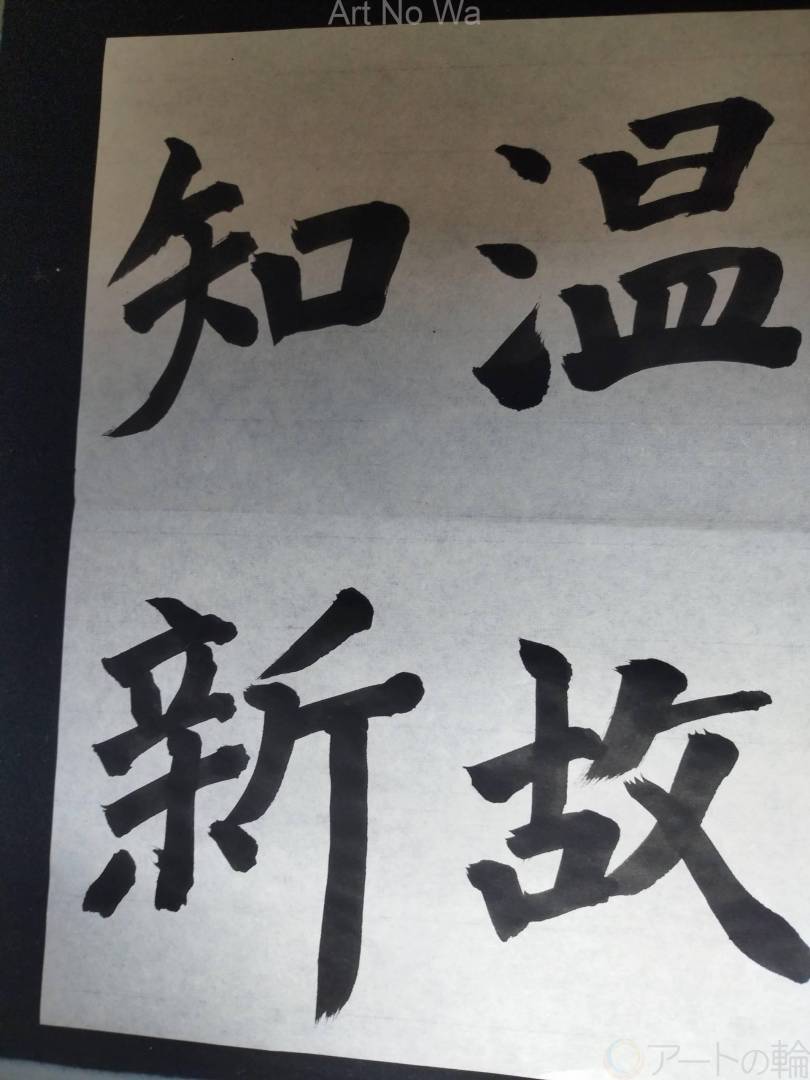 Art No Wa
温故
知新
アートの輪